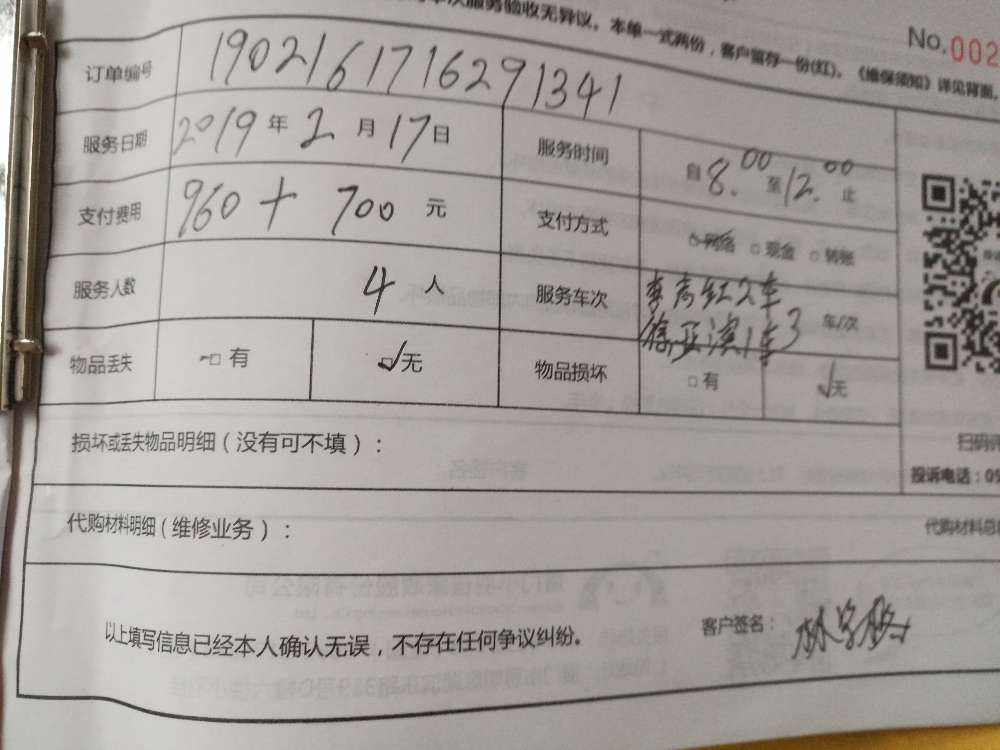 次服务验收无异议。本单一式两份，客户留存一份(红)。《维保须知》详见背面。
No.002
订单编号 1902161716291341
服务日期 2019年2月17日 服务时间 自8.00至12.00止
支付费用 960+700元 支付方式 网络 □现金 □转账
服务人数 4人 服务车次 李彦红2车
1车3 车/次
物品丢失 □有 □无 物品损坏 □有 无
损坏或丢失物品明细（没有可不填）： 扫码
投诉电话：09
代购材料明细（维修业务）： 代购材料总
以上填写信息已经本人确认无误，不存在任何争议纠纷。 客户签名：